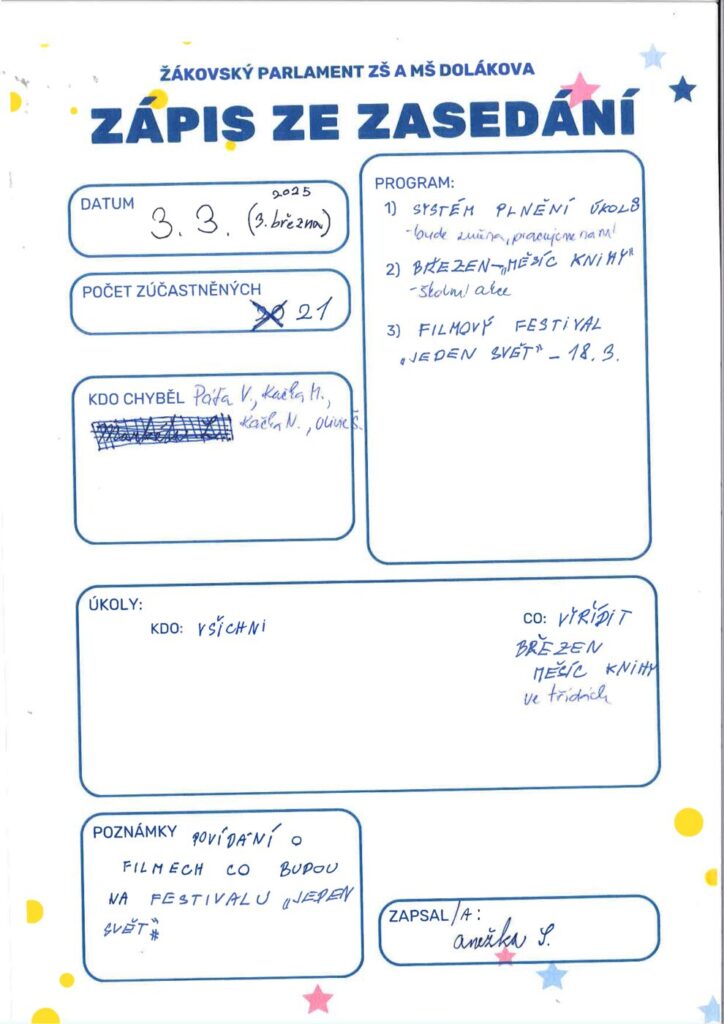 ŽÁKOVSKÝ PARLAMENT ZŠ A MŠ DOLÁKOVA
ZÁPIS ZE ZASEDÁNÍ
DATUM 3. 3. (3. března) 2025
POČET ZÚČASTNĚNÝCH
20 21
KDO CHYBĚL Páťa V., Kačka M.,
Kačka N., Olivie Š.
PROGRAM:
1) SYSTÉM PLNĚNÍ ÚKOLŮ
-bude změna, pracujeme na ní
2) BŘEZEN-„MĚSÍC KNIHY"
-školní akce
3) FILMOVÝ FESTIVAL
„JEDEN SVĚT" – 18.3.
ÚKOLY:
KDO: VŠICHNI
CO: VYŘÍDIT
BŘEZEN
MĚSÍC KNIHY
ve třídách
POZNÁMKY POVÍDÁNÍ O
FILMECH CO BUDOU
NA FESTIVALU „JEDEN
SVĚT"
ZAPSAL/A:
Anežka S.